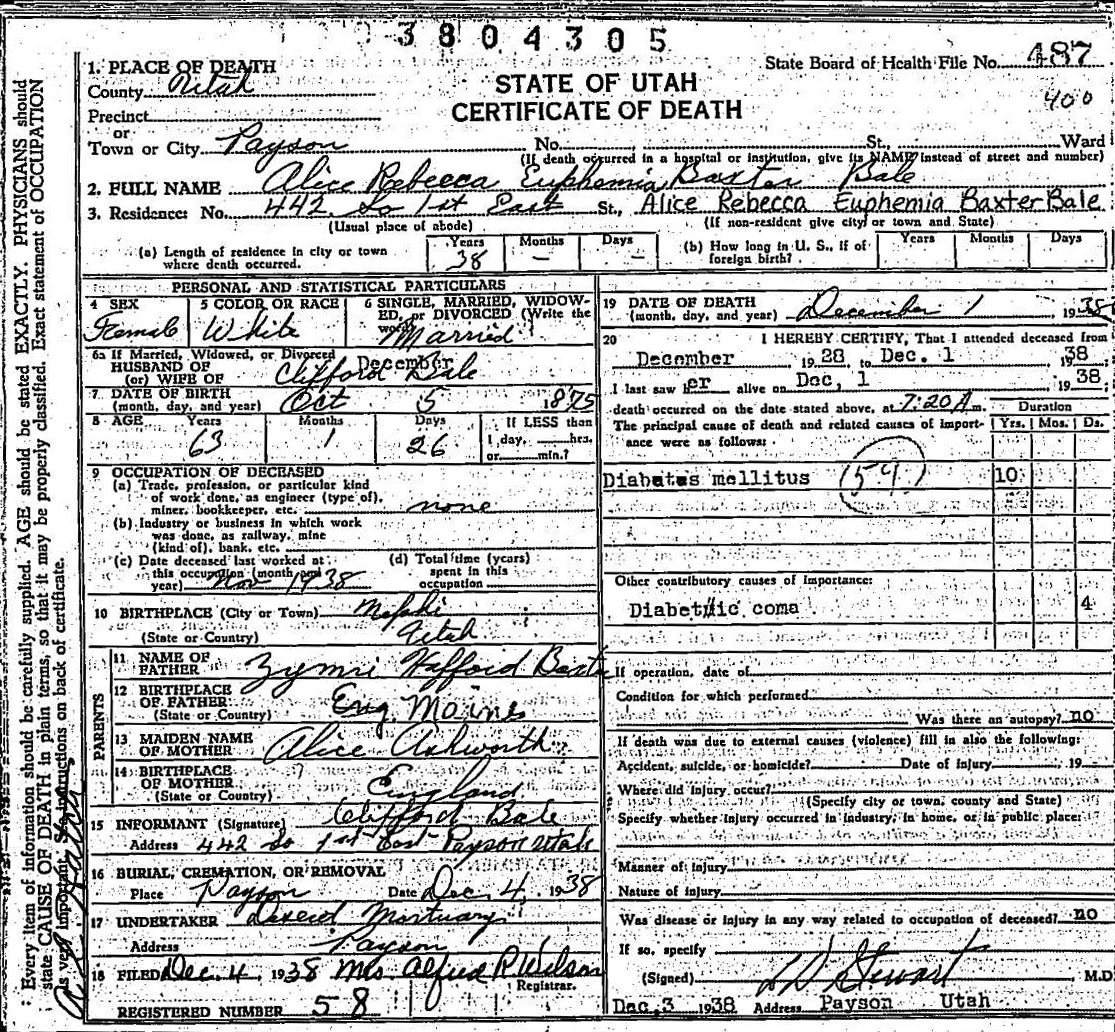 3804305
State Board of Health File No. 487
400
STATE OF UTAH
CERTIFICATE OF DEATH
1. PLACE OF DEATH
County Utah
Precinct
or
Town or City Payson No. St., Ward
(If death occurred in a hospital or institution, give its NAME instead of street and number)
2. FULL NAME Alice Rebecca Euphemia Baxter Bale
3. Residence: No. 442 So 1st East St., Alice Rebecca Euphemia Baxter Bale
(Usual place of abode) (If non-resident give city or town and State)
(a) Length of residence in city or town where death occurred. Years 38 Months – Days –
(b) How long in U. S., if of foreign birth? Years Months Days
PERSONAL AND STATISTICAL PARTICULARS
4 SEX Female
5 COLOR OR RACE White
6 SINGLE, MARRIED, WIDOWED, or DIVORCED (Write the word) Married
6a If Married, Widowed, or Divorced
HUSBAND OF
(or) WIFE OF Clifford Bale
December
7 DATE OF BIRTH
(month, day, and year) Oct 5 1875
8 AGE Years 63 Months 1 Days 26 If LESS than
1 day, hrs.
or min.?
9 OCCUPATION OF DECEASED
(a) Trade, profession, or particular kind
of work done, as engineer (type of),
miner, bookkeeper, etc. none
(b) Industry or business in which work
was done, as railway, mine
(kind of), bank, etc.
(c) Date deceased last worked at
this occupation (month and
year) Nov 1938
(d) Total time (years)
spent in this
occupation
10 BIRTHPLACE (City or Town)
(State or Country) Utah
PARENTS
11 NAME OF
FATHER Zymri Hafford Baxter
12 BIRTHPLACE
OF FATHER
(State or Country) Maine
13 MAIDEN NAME
OF MOTHER Alice Ashworth
14 BIRTHPLACE
OF MOTHER
(State or Country) England
15 INFORMANT (Signature) Clifford Bale
Address 442 So 1st East Payson Utah
16 BURIAL, CREMATION, OR REMOVAL
Place Payson Date Dec. 4, 1938
17 UNDERTAKER Mortuary
Address Payson
18 FILED Dec. 4 1938 Mrs Alfred R Wilson
Registrar.
REGISTERED NUMBER 58
19 DATE OF DEATH
(month, day, and year) December 1 1938
20 I HEREBY CERTIFY, That I attended deceased from
December 1928 to Dec. 1 1938
I last saw her alive on Dec, 1 1938
death occurred on the date stated above, at 7:20 A m.
The principal cause of death and related causes of importance were as follows: Duration Yrs. Mos. Ds.
Diabetes mellitus 59 10
Other contributory causes of importance:
Diabetic coma 4
If operation, date of
Condition for which performed
Was there an autopsy? no
If death was due to external causes (violence) fill in also the following:
Accident, suicide, or homicide? Date of injury 19
Where did injury occur?
(Specify city or town, county and State)
Specify whether injury occurred in industry, in home, or in public place:
Manner of injury
Nature of injury
Was disease or injury in any way related to occupation of deceased? no
If so, specify
(Signed) L D Stewart M.D
Dec. 3 1938 Address Payson Utah
Every item of information should be carefully supplied. AGE should be stated EXACTLY. PHYSICIANS should
state CAUSE OF DEATH in plain terms, so that it may be properly classified. Exact statement of OCCUPATION
is very important. See instructions on back of certificate.